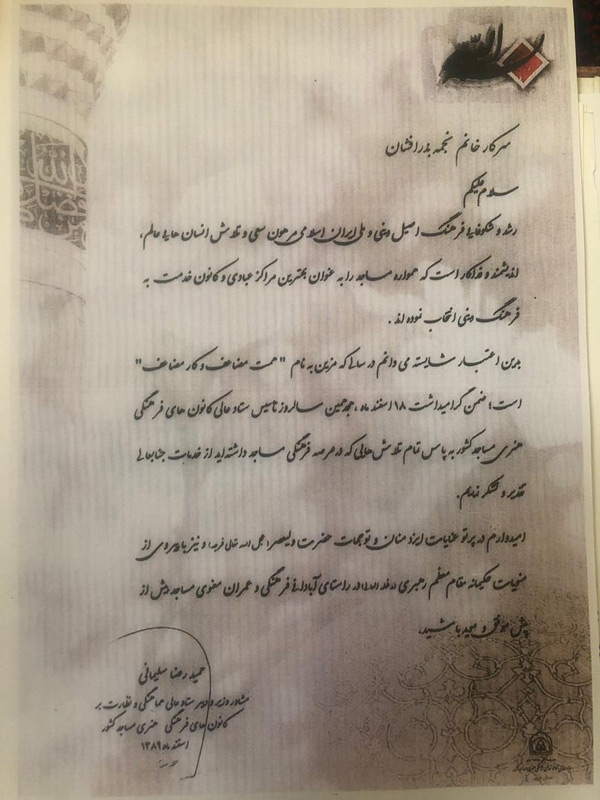 سرکار خانم نجمه بذرافشان
سلام علیکم
رشد و شکوفایی فرهنگ اصیل دینی و ملی ایران اسلامی مرهون سعی و تلاش انسان هایی عالم،
اندیشمند و فداکار است که همواره مساجد را به عنوان بهترین مراکز عبادی و کانون خدمت به
فرهنگ دینی انتخاب نموده اند .
بدین اعتبار شایسته می دانم در سالی که مزین به نام " همت مضاعف و کار مضاعف "
است؛ ضمن گرامیداشت ۱۸ اسفند ماه ، هجدهمین سالروز تاسیس ستاد عالی کانون های فرهنگی
هنری مساجد کشور به پاس تمام تلاش هایی که در عرصه فرهنگی مساجد داشته اید از خدمات جنابعالی
تقدیر و تشکر نمایم.
امیدوارم در پرتو عنایات ایزد منان و توجهات حضرت ولیعصر(عجل الله تعالی فرجه) و نیز با پیروی از
منویات حکیمانه مقام معظم رهبری (مدظله العالی) در راستای آبادانی فرهنگی و عمران معنوی مساجد بیش از
پیش موفق و موید باشید.
حمید رضا سلیمانی
مشاور وزیر و دبیر ستاد عالی هماهنگی و نظارت بر
کانون های فرهنگی هنری مساجد کشور
اسفند ماه ۱۳۸۹